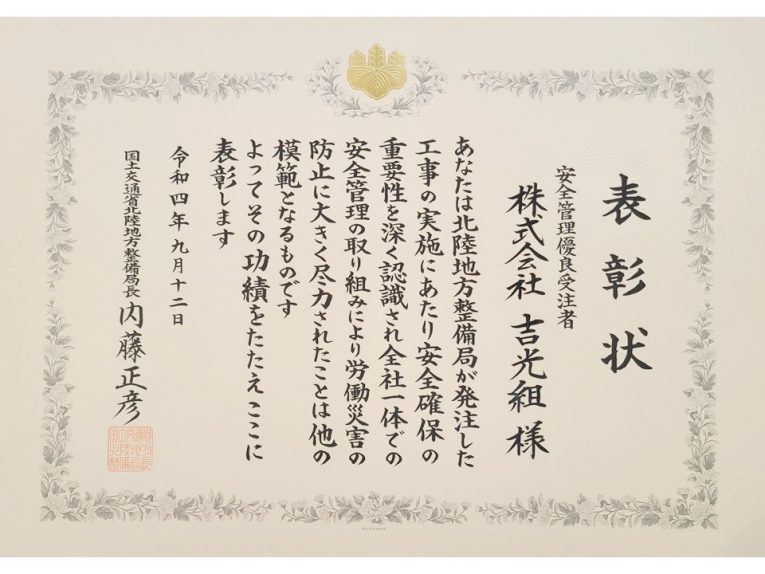 表彰状
安全管理優良受注者
株式会社 吉光組 様
あなたは北陸地方整備局が発注した
工事の実施にあたり安全確保の
重要性を深く認識され全社一体での
安全管理の取り組みにより労働災害の
防止に大きく尽力されたことは他の
模範となるものです
よってその功績をたたえここに
表彰します
令和四年九月十二日
国土交通省北陸地方整備局長 内藤正彦